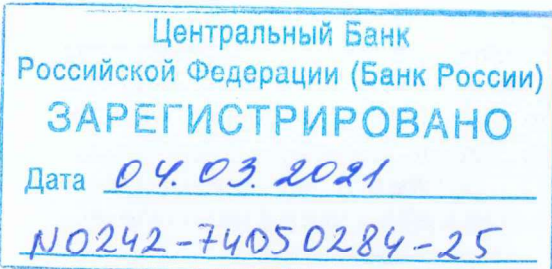 Центральный Банк
Российской Федерации (Банк России)
ЗАРЕГИСТРИРОВАНО
Дата 04.03.2021
N0242-74050284-25